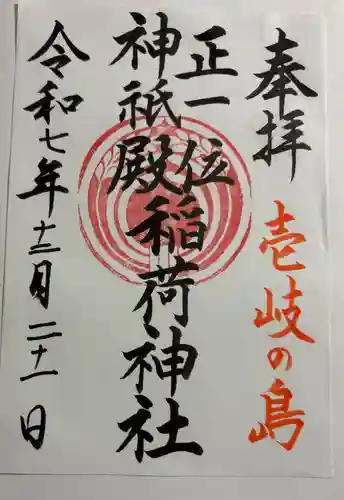 奉拝
壱岐の島
正一位
神祇殿稲荷神社
令和七年十二月二十一日